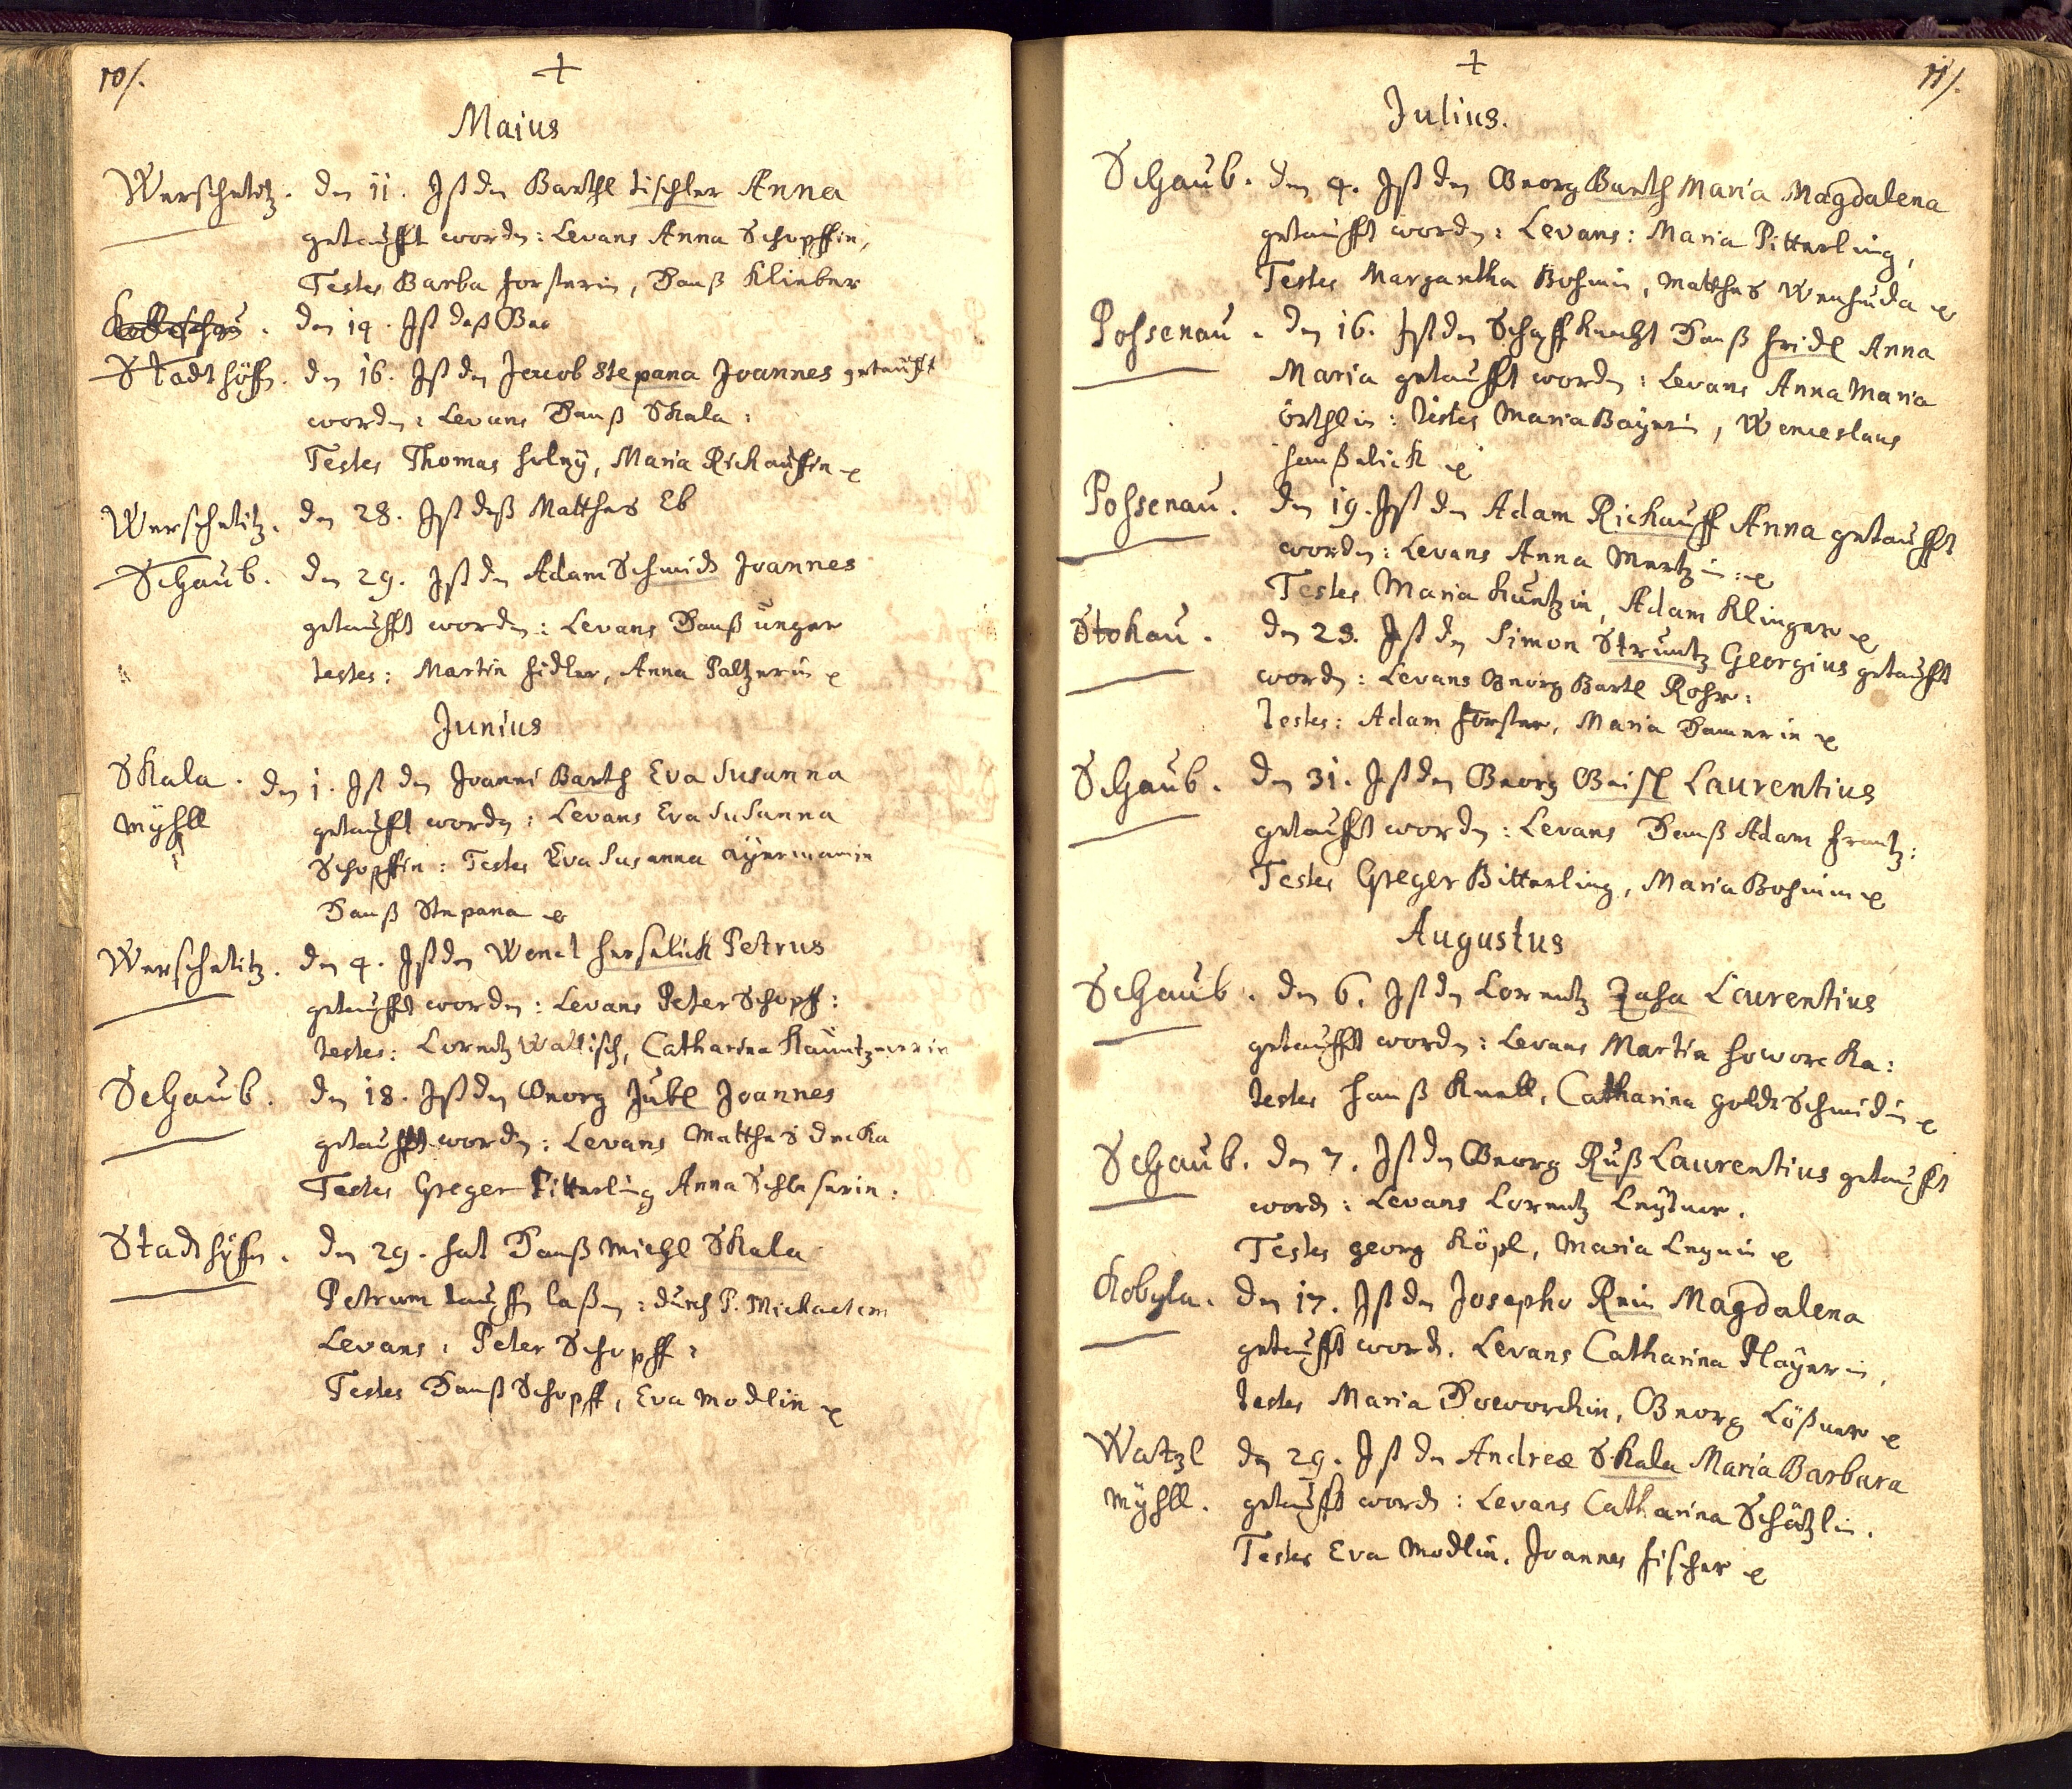 10/.
+
Maius
Werschetitz. den 11. Ist den Barthl tischler Anna
getaufft worden: Levans Anna Schopffin,
Testes Barba forsterin, Hanß Klieber
den 14. Ist deß
Stadthöffn. den 16. Ist den Jacob Stepana Joannes getaufft
worden: Levans Hanß Skala:
Testes Thomas holeÿ, Maria Rickauffin
Werschetitz. den 28. Ist deß Matthes Eb
Schaub. den 29. Ist den Adam Schmidt Joannes
getaufft worden: Levans Hanß unger
testes: Martin fidler, Anna Paltzerin
Junius
Skala. den 1. Ist den Joanni Barth Eva Susanna
Mÿhll getaufft worden: Levans Eva Susanna
Schopffin: Testes Eva Susanna aÿermanin
Hanß Stepana
Werschetitz. den 4. Ist den Wenzl herselick Petrus
getaufft worden: Levans Peter Schopff:
testes: Lorentz Wallisch, Catharina
Schaub. den 18. Ist den Georg Jübl Joannes
getaufft worden: Levans Matthes decka
Testes Greger Pitterling Anna Schlesserin:
Stadthÿffn. den 29. hat Hanß Michl Skala
Petrum tauffen laßen: durch P. Michaelem
Levans: Peter Schopff:
Testes Hanß Schopff, Eva Modlin
11/.
+
Julius.
Schaub. den 4. Ist den Georg Barth Maria Magdalena
getaufft worden: Levans: Maria Pitterling,
Testes Margaretha Bohmin, Matthes
Possenau. den 16. Ist den Schaffknecht Hanß fridl Anna
Maria getaufft worden: Levans Anna Maria
örthlin: testes Maria Baÿerin, Wenceslaus
haußelick
Possenau. den 19. Ist den Adam Rickauff Anna getaufft
worden: Levans Anna Mertzin:
Testes Maria Kuntzin, Adam Klinger
Stokau. den 23. Ist den Simon Struntz Georgius getaufft
worden: Levans Georg Bartl Rohr:
testes: Adam forster, Maria Hamerin
Schaub. den 31. Ist den Georg Beisl Laurentius
getaufft worden: Levans Hanß Adam frantz:
Testes Greger Bitterling, Maria Bohmin
Augustus
Schaub. den 6. Ist den Lorentz Zaha Laurentius
getaufft worden: Levans Martin howorcka:
testes Hanß Knell, Catharina goldtschmidin
Schaub. den 7. Ist den Georg Ruß Laurentius getaufft
worden: Levans Lorentz Leÿtner.
Testes georg Köpl, Maria
Kobyla. den 17. Ist den Josepho Rein Magdalena
getaufft worden. Levans Catharina Playerin,
testes Maria Howorckin, Georg Lößner
Watzl den 29. Ist den Andreæ Skala Maria Barbara
mÿhll. getaufft worden: Levans Catharina Schätzlin.
Testes Eva Modlin, Joannes fischer